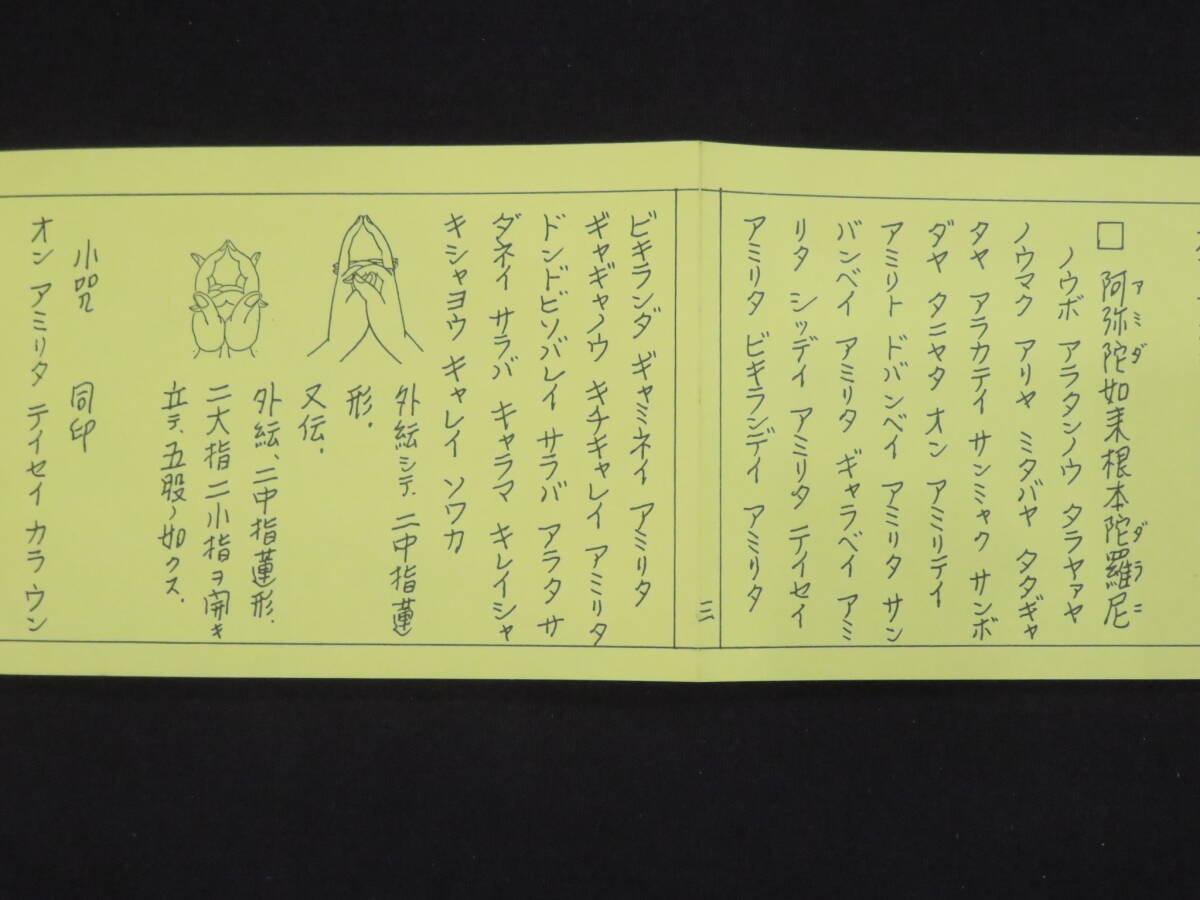 □ 阿弥陀如来根本陀羅尼
アミダ ダラニ
ノウボ アラタンノウ タラヤァヤ
ノウマク アリヤ ミタバヤ タタギャ
タヤ アラカテイ サンミャク サンボ
ダヤ タニャタ オン アミリテイ
アミリト ドバンベイ アミリタ サン
バンベイ アミリタ ギャラベイ アミ
リタ シッデイ アミリタ テイセイ
アミリタ ビキランデイ アミリタ
三
ビキランダ ギャミネイ アミリタ
ギャギャノウ キチキャレイ アミリタ
ドンドビソバレイ サラバ アラタ サ
ダネイ サラバ キャラマ キレイシャ
キシャヨウ キャレイ ソワカ
外紜シテ、二中指蓮
形.
又伝.
外紜、二中指蓮形.
二大指二小指ヲ開キ
立テ、五股ノ如クス.
小咒 同印
オン アミリタ テイセイ カラ ウン